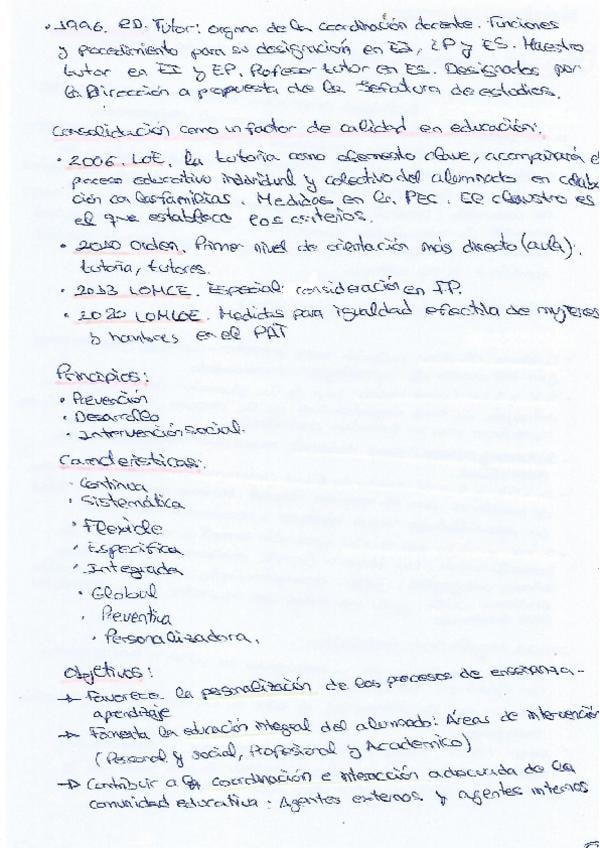 · 1996. RD. Tutor: organo de la coordinación docente. Funciones
y procedimiento para su designación en EI, EP y ES. Maestro
tutor en EI y EP. Profesor tutor en ES. Designados por
la Dirección a propuesta de la Jefatura de estudios.
Consolidación como un factor de calidad en educación:
· 2006. LOE. la tutoría como elemento clave, acompañará e
proceso educativo individual y colectivo del alumnado en colab
ción con las familias. Medidas en la PEC. El claustro es
el que establece los criterios.
· 2010 Orden. Primer nivel de orientación más directo (aula):
tutoría, tutores.
· 2013 LOMCE. Especial consideración en FP.
· 2020 LOMLOE. Medidas para igualdad efectiva de mujeres
y hombres en el PAT
Principios:
· Prevención
· Desarrollo
· Intervención social.
Características:
· Continua
· Sistemática
· Flexible
· Específica
· Integrada
· Global
Preventiva
· Personalizadora.
Objetivos:
→ Favorecer la personalización de los procesos de enseñanza-
aprendizaje
→ Fomenta la educación integral del alumnado: Áreas de intervención
(Personal y social, Profesional y Academico)
→ Contribuir a la coordinación e interacción adecuada de la
comunidad educativa: Agentes externos y agentes internos